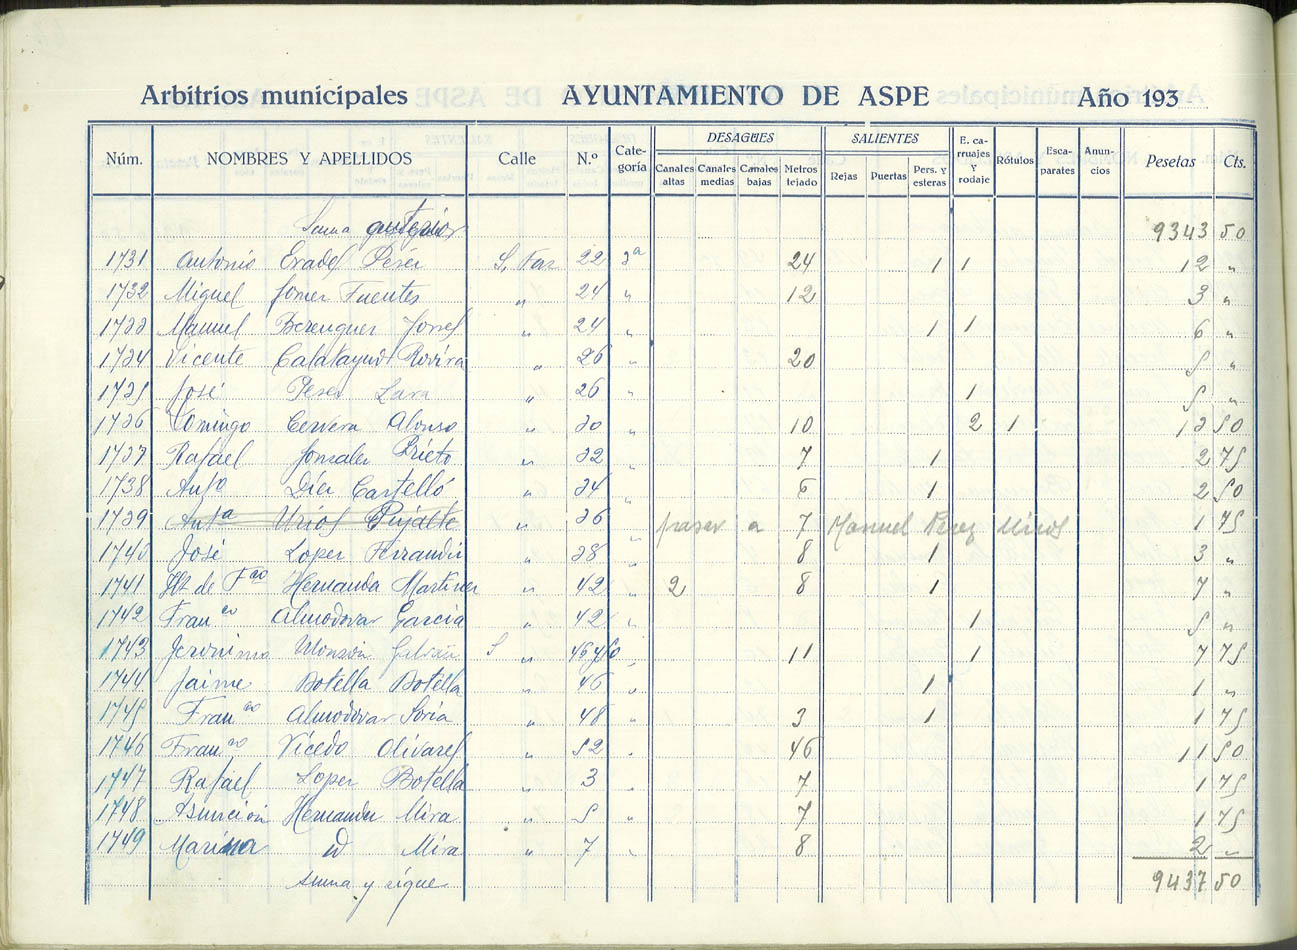 Arbitrios municipales AYUNTAMIENTO DE ASPE Año 193
Núm. NOMBRES Y APELLIDOS Calle N.º Cate-goría DESAGÜES Canales altas Canales medias Canales bajas Metros tejado SALIENTES Rejas Puertas Pers. y esteras E. ca-rruajes y rodaje Rótulos Esca-parates Anun-cios Pesetas Cts.
Suma anterior 9343 50
1731 Antonio Erades Perez S, 22 3ª 24 1 1 12 "
1732 Miguel Gomez Fuentes " 24 " 12 3 "
1733 Manuel Berenguer " 24 " 1 1 6 "
1734 Vicente Calatayud Rovira " 26 " 20 5 "
1735 José Perez Lara " 26 " 1 5 "
1736 Domingo Cervera Alonso " 30 " 10 2 1 13 50
1737 Rafael Gonzalez Prieto " 32 " 7 1 2 75
1738 Antº Diez Castelló " 34 " 6 1 2 50
1739 Antª Urios Pujalte " 36 " pasar a 7 Manuel Perez Urios 1 75
1740 José Lopez Ferrandiz " 38 " 8 1 3 "
1741 de Fco Hernandez Martinez " 42 " 2 8 1 7 "
1742 Franco Almodovar Garcia " 42 " 1 5 "
1743 Jeronima Monzon S " " 11 1 7 75
1744 Jaime Botella Botella " 46 " 1 1 "
1745 Franco Almodovar Soria " 48 " 3 1 1 75
1746 Franco Vicedo Olivares " 52 " 46 11 50
1747 Rafael Lopez Botella " 3 " 7 1 75
1748 Asunción Hernandez Mira " 5 " 7 1 75
1749 id Mira " 7 " 8 2 "
Suma y sigue 9437 50